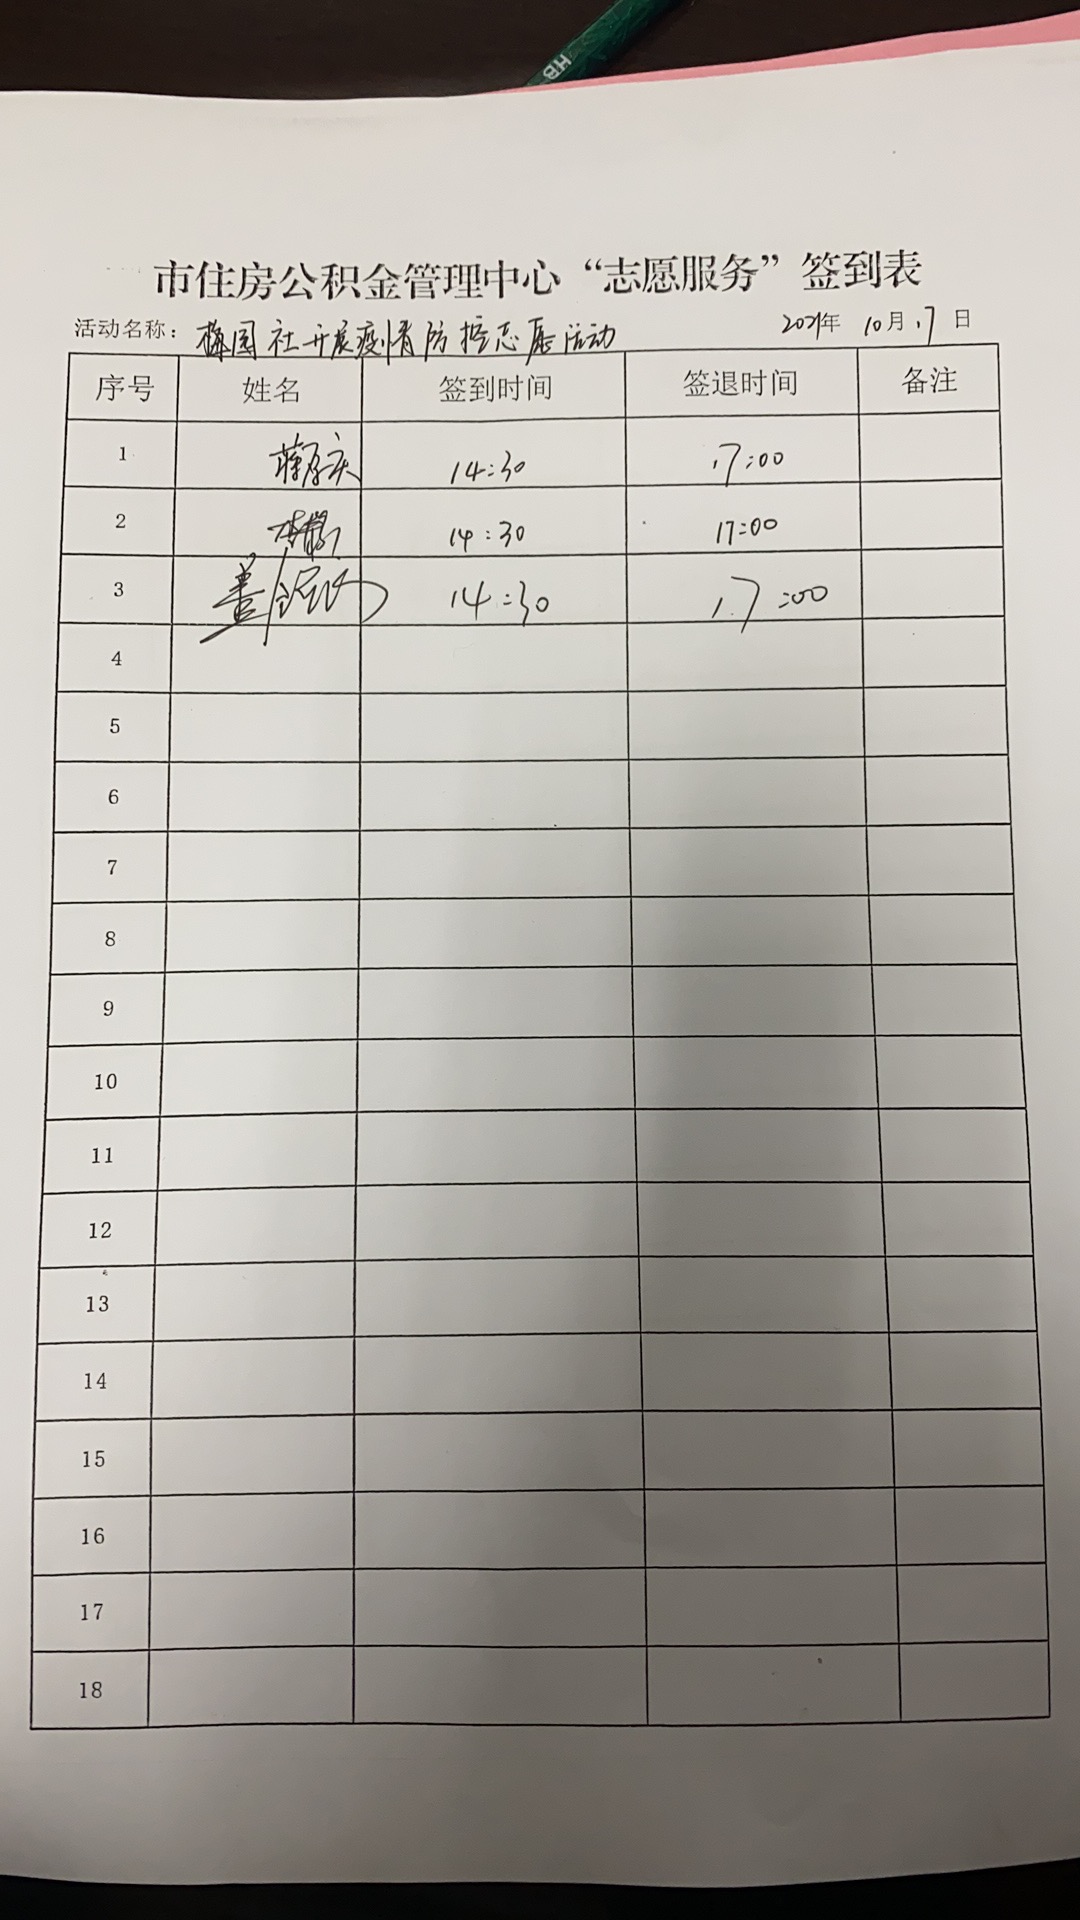 HB
市住房公积金管理中心“志愿服务”签到表
活动名称：梅园社开展疫情防控志愿活动 2021年 10月 17日
序号 姓名 签到时间 签退时间 备注
1 14:30 17:00
2 14:30 17:00
3 14:30 17:00
4
5
6
7
8
9
10
11
12
13
14
15
16
17
18